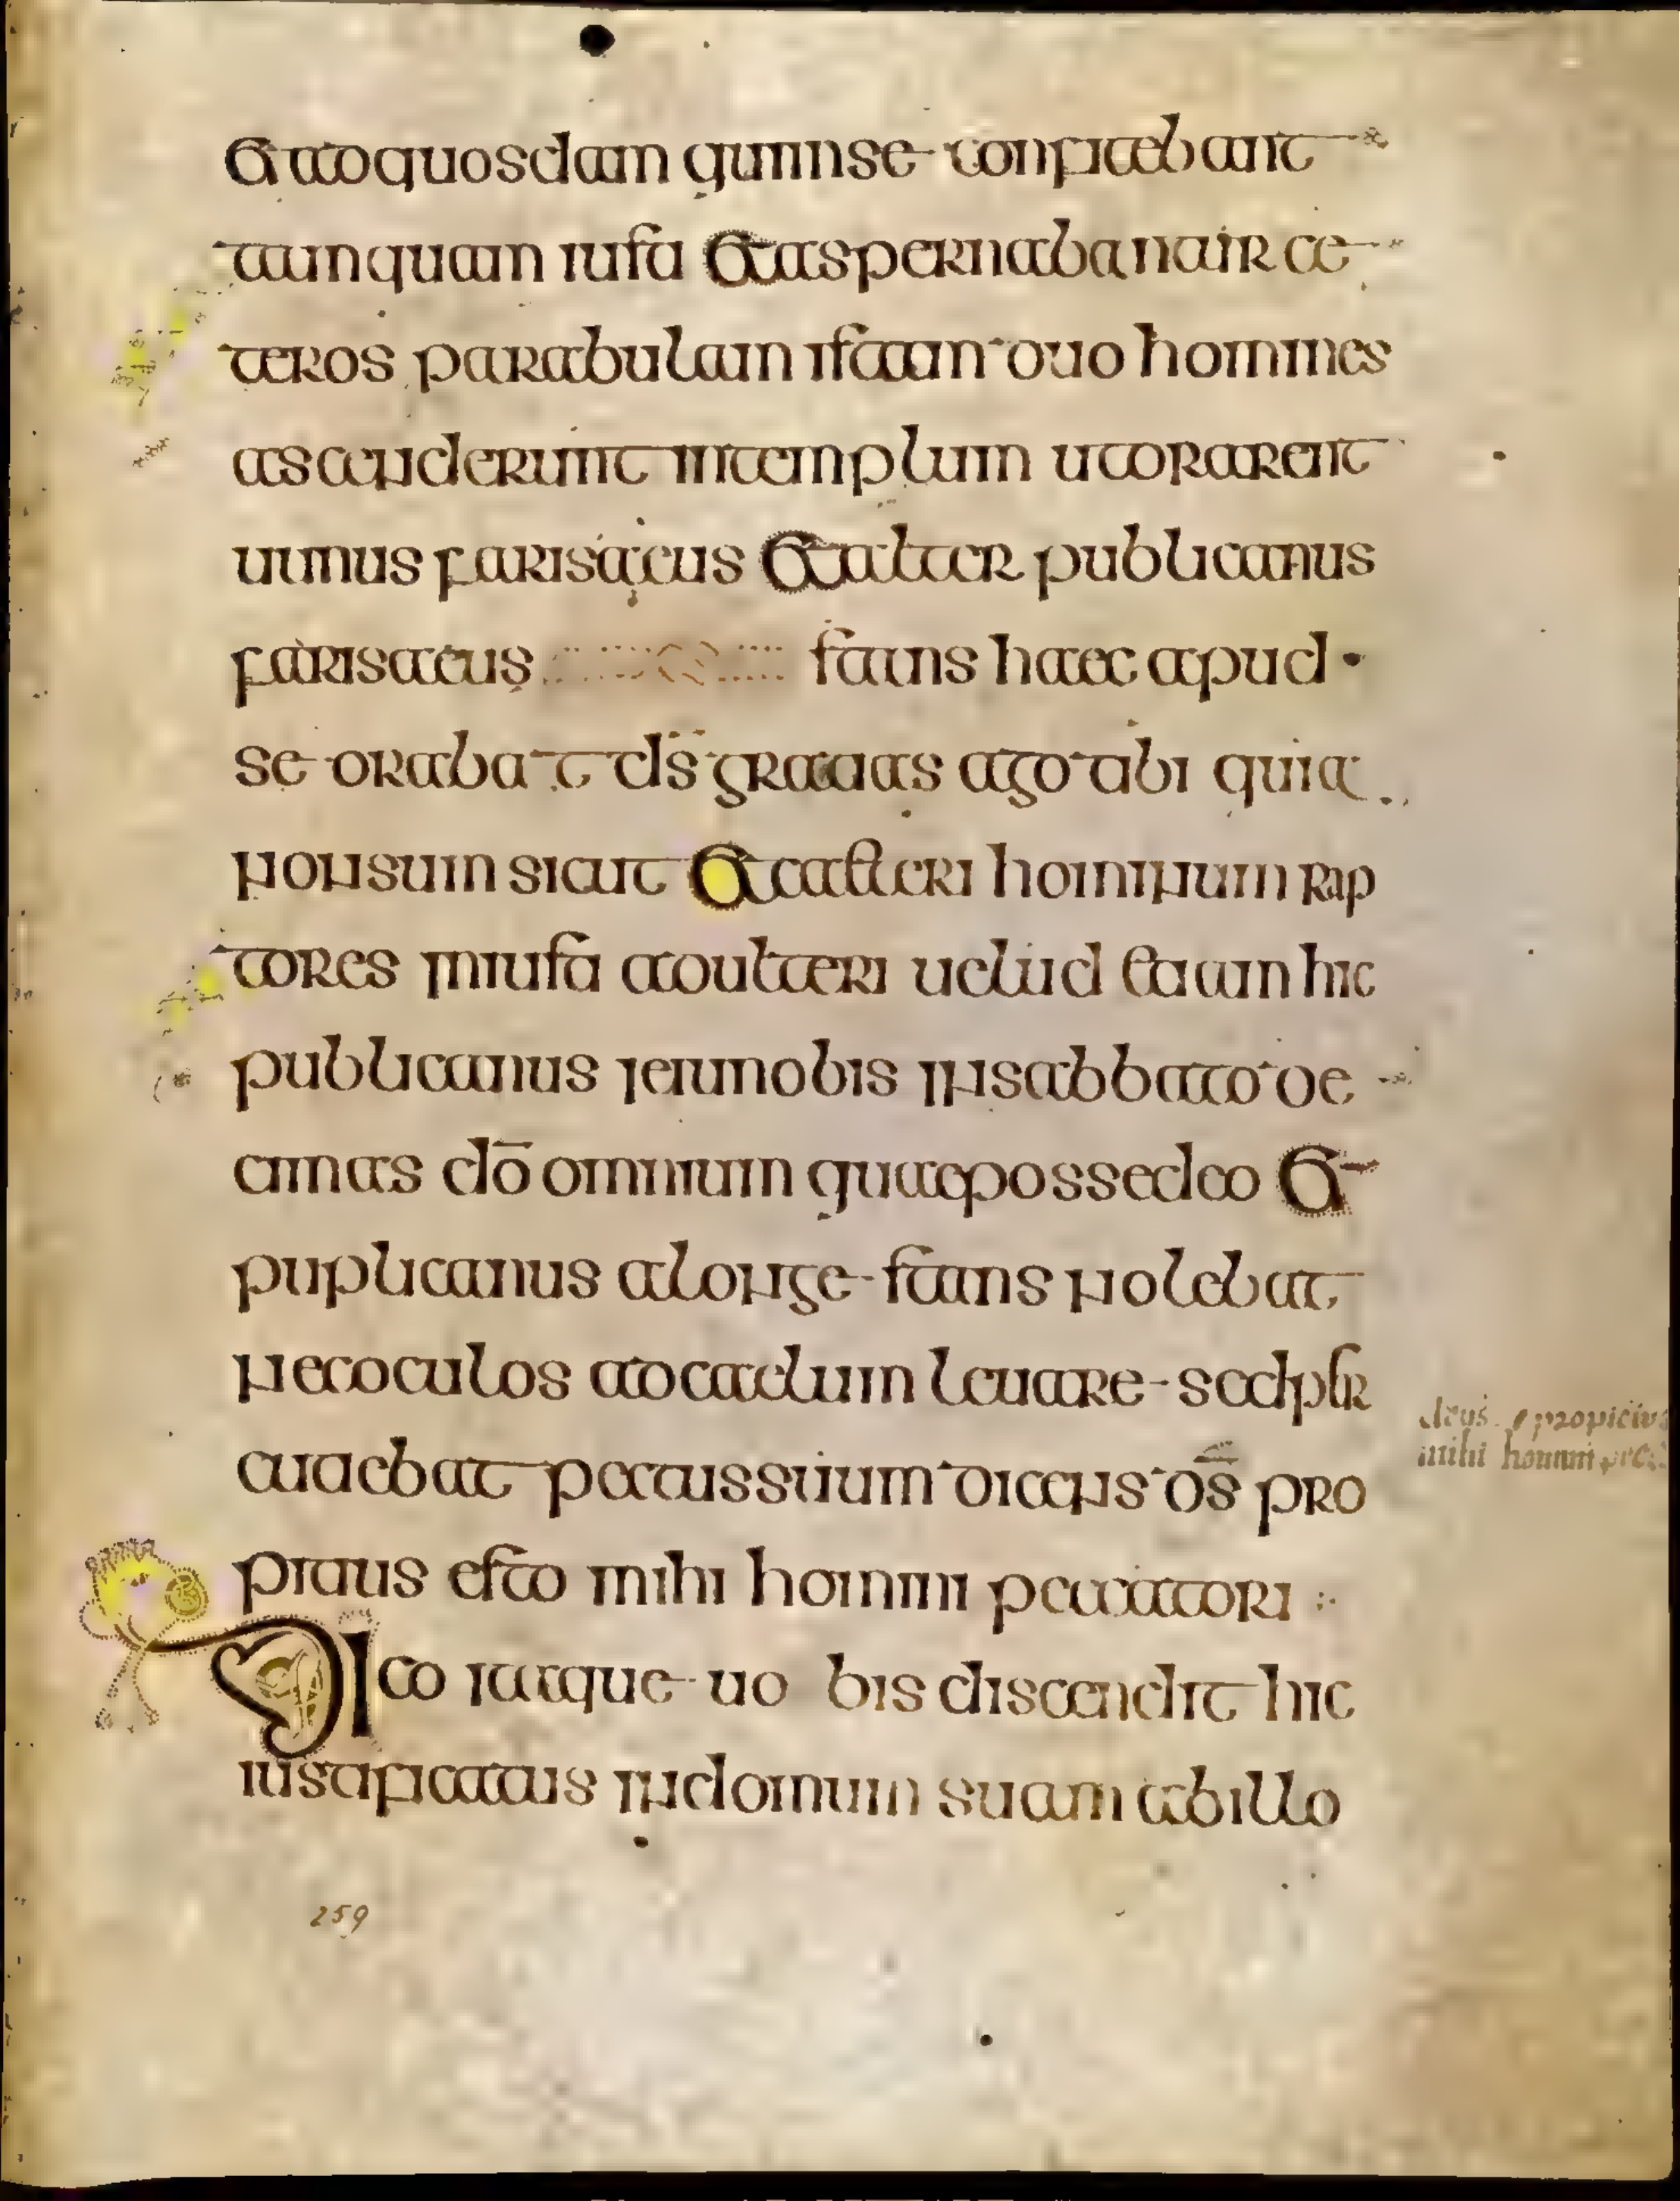 Et adquosdam qui inse confitebant
tamquam iusti Et aspernabantur ce
teros parabulam istam duo homines
ascenderunt intemplum utorarent
uinus farisaeus Et alter publicanus
farisaeus stans haec apud
se orabat ds̄ gratias ago tibi quia
nonsum sicut Et caeteri hominum rap
tores iniusti adulteri uelud etiam hic
publicanus ieiuno bis insabbato de
cimas dō omnium quae possedeo Et
puplicanus alonge stans nolebat
necoculos adcaelum leuare sed per
cutiebat pectussuum dicens ds̄ pro
pitius esto mihi homini peccatori
deus propicius
mihi homini
Dico itaque uobis discendit hic
iustificatus indomum suam abillo
259